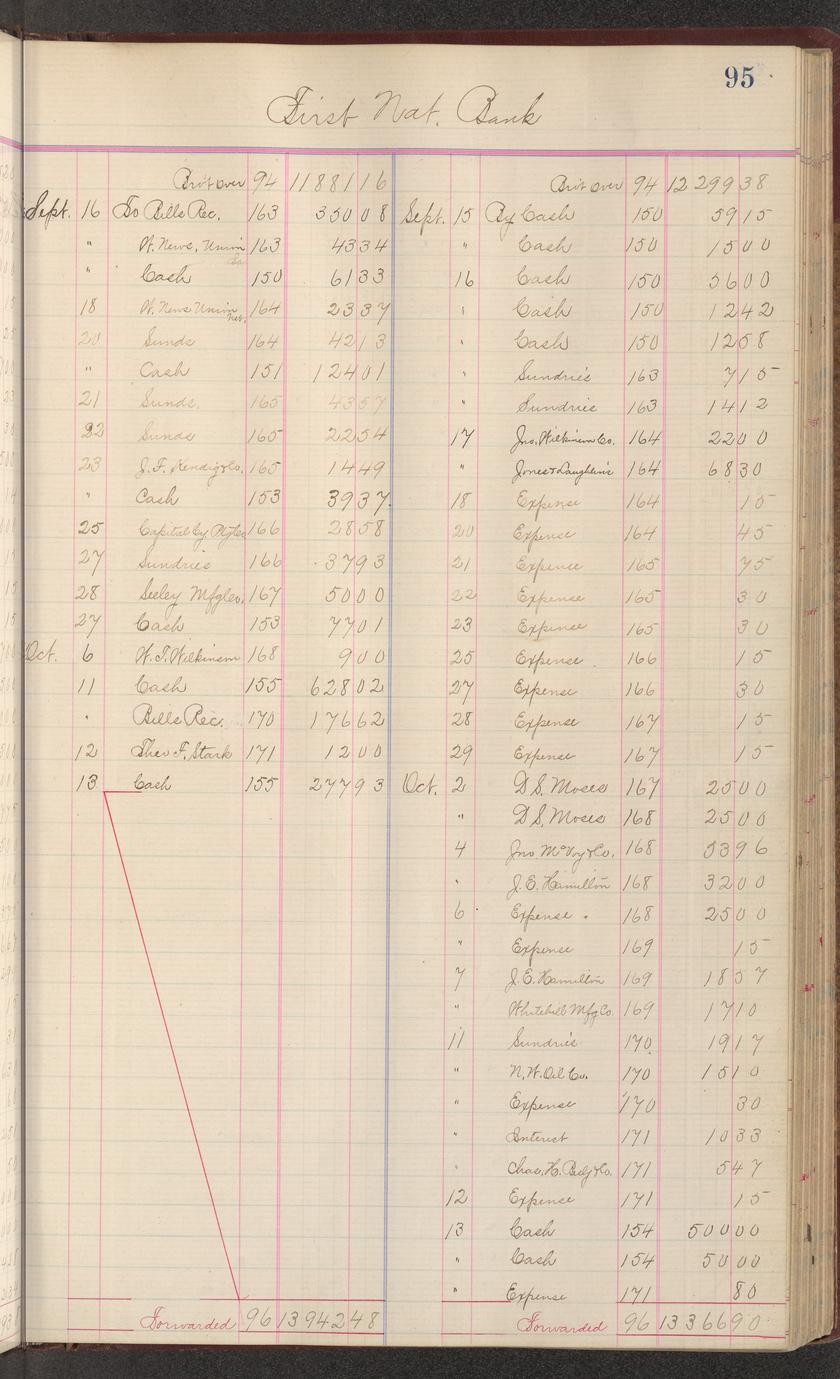 95
First Nat. Bank
Bro't over 94 11881 16 Bro't over 94 12299 38
Sept. 16 To Bills Rec. 163 350 08 Sept. 15 By Cash 150 59 15
" W. News. Union Co. 163 43 34 " Cash 150 15 00
" Cash 150 61 33 16 Cash 150 56 00
18 W. News Union 164 23 37 " Cash 150 12 42
20 Sunds 164 42 13 " Cash 150 12 58
" Cash 151 124 01 " Sundries 163 7 15
21 Sunds. 165 43 57 " Sundries 163 14 12
22 Sunds 165 22 54 17 Jno. Wilkinson Co. 164 22 00
23 J. F. Kendig & Co. 165 14 49 " Jones & Laughlin's 164 68 30
" Cash 153 39 37 18 Expense 164 15
25 Capital Cy. 166 28 58 20 Expense 164 45
27 Sundries 166 37 93 21 Expense 165 75
28 Seeley Mfg Co. 167 50 00 22 Expense 165 30
27 Cash 153 77 01 23 Expense 165 30
Oct. 6 W. T. Wilkinson 168 9 00 25 Expense 166 15
11 Cash 155 628 02 27 Expense 166 30
" Bills Rec. 170 176 62 28 Expense 167 15
12 Theo F. Stark 171 12 00 29 Expense 167 15
13 Cash 155 277 93 Oct. 2 D. S. Moses 167 25 00
" D. S. Moses 168 25 00
4 Jno McVoy & Co. 168 53 96
" J. E. Hamilton 168 32 00
6 Expense 168 25 00
" Expense 169 15
7 J. E. Hamilton 169 18 57
" Whitehill Mfg Co. 169 17 10
11 Sundries 170 19 17
" N. W. Oil Co. 170 15 10
" Expense 170 30
" Interest 171 10 33
" Chas. H. & Co. 171 5 47
12 Expense 171 15
13 Cash 154 500 00
" Cash 154 50 00
" Expense 171 80
Forwarded 96 13942 48 Forwarded 96 13366 90